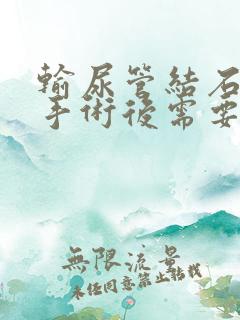 輸尿管結石
手術後需要
無限流景
未经同意禁止转载